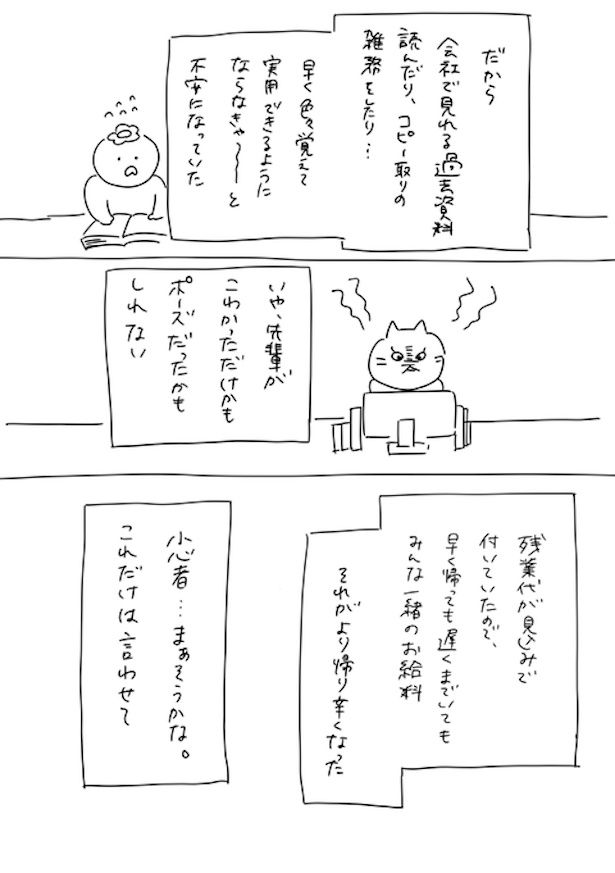 だから
会社で見れる過去資料
読んだり、コピー取りの
雑務をしたり…
早く色々覚えて
実用できるように
ならなきゃ〜〜と
不安になっていた
いや、先輩が
こわかっただけかも
ポーズだったかも
しれない
残業代が見込みで
付いていたので、
早く帰っても遅くまでいても
みんな一緒のお給料
それがより帰り辛くなった
小心者…まぁそうかな。
これだけは言わせて